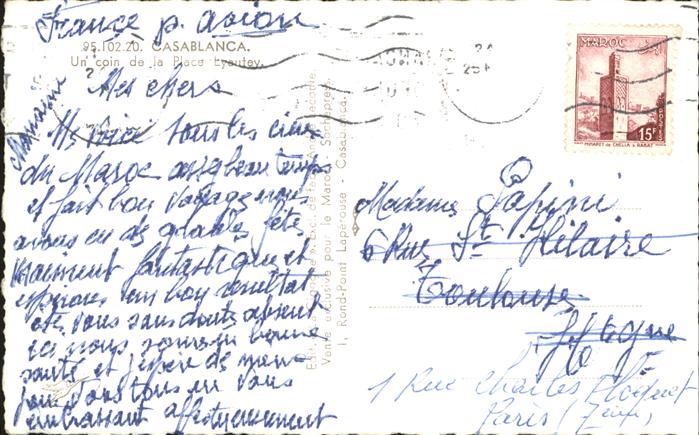 France p. avion
95.102.20. CASABLANCA.
Un coin de la Place Lyautey.
Mes chers
Me voici sous les cieux
du Maroc assez beau temps
et fait bon voyage nous
avons eu de grandes fêtes
vraiment fantastique et
espérons un bon résultat
êtes vous sans doute absent
ici nous sommes en bonne
santé et j'espère de même
pour vous tous en vous
embrassant affectueusement
Vente exclusive pour le Maroc
1, Rond-Point Lapérouse - Casablanca.
MAROC
15F
POSTES
MINARET de CHELLA à RABAT
Madame Papini
6 Rue St Hilaire
Toulouse
1 Rue Charles Floquet
Paris (7em)